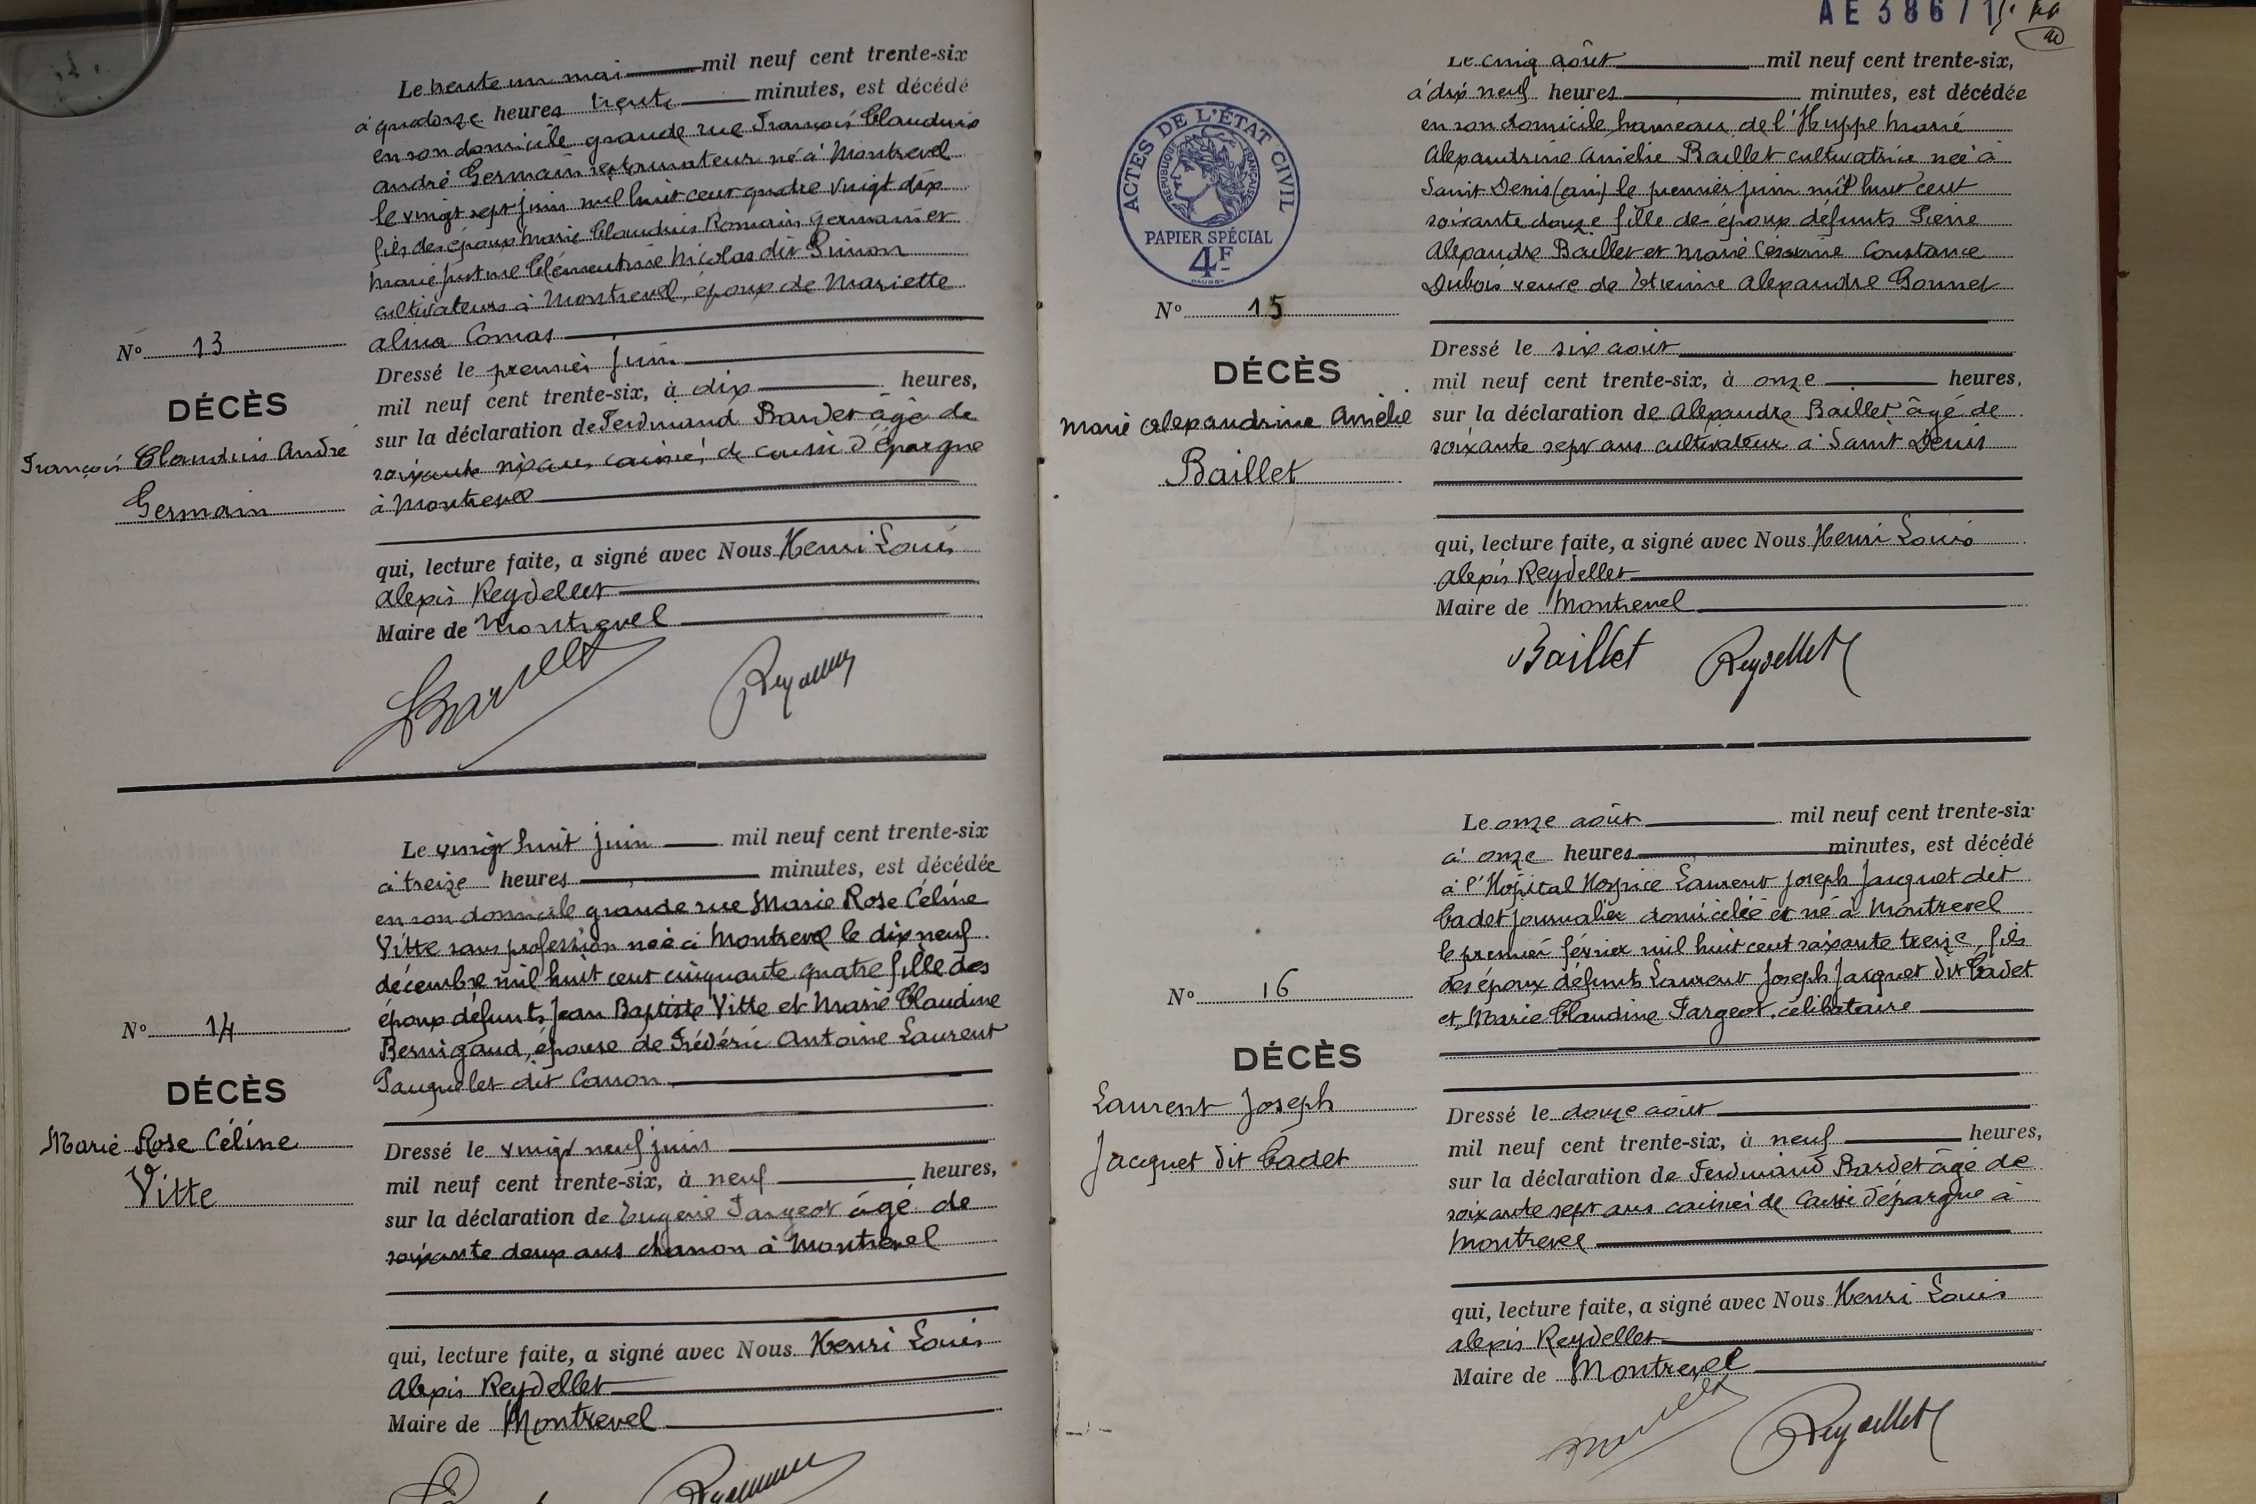 Le trente un mai mil neuf cent trente-six
à quatorze heures trente minutes, est décédé
en son domicile grande rue François Claudius
André Germain né à Montrevel
le vingt sept juin mil huit cent quatre vingt dix
fils des époux Marie Claudius Romain Germain et
Marie Justine Clémentine Nicolas dit Pinon
cultivateurs à Montrevel, époux de Mariette
Alina Comas
Nº 13
DÉCÈS
François Claudius André
Germain
Dressé le premier juin
mil neuf cent trente-six, à dix heures,
sur la déclaration de Ferdinand Bardet âgé de
soixante ans, de caisse d'épargne
à Montrevel
qui, lecture faite, a signé avec Nous Henri Louis
Alexis Reydellet
Maire de Montrevel
Reydellet
Le vingt huit juin mil neuf cent trente-six
à treize heures minutes, est décédée
en son domicile grande rue Marie Rose Céline
Vitte sans profession née à Montrevel le dix neuf
décembre mil huit cent cinquante quatre fille des
époux défunts Jean Baptiste Vitte et Marie Claudine
Bernigaud, épouse de Frédéric Antoine Laurent
Pauquelet dit Carron
Nº 14
DÉCÈS
Marie Rose Céline
Vitte
Dressé le vingt neuf juin
mil neuf cent trente-six, à neuf heures,
sur la déclaration de Eugène Fargeot âgé de
soixante deux ans charron à Montrevel
qui, lecture faite, a signé avec Nous Henri Louis
Alexis Reydellet
Maire de Montrevel
AE 386715
ACTES DE L'ÉTAT CIVIL
RÉPUBLIQUE FRANÇAISE
PAPIER SPÉCIAL
4F
Le cinq août mil neuf cent trente-six,
à dix neuf heures minutes, est décédée
en son domicile hameau de l'Huppe Marie
Alexandrine Amélie Baillet cultivatrice née à
Saint Denis (ain) le premier juin mil huit cent
soixante douze fille des époux défunts Pierre
Alexandre Baillet et Marie Césarine Constance
Dubois veuve de Etienne Alexandre Gonnet
Nº 15
DÉCÈS
Marie Alexandrine Amélie
Baillet
Dressé le six août
mil neuf cent trente-six, à onze heures,
sur la déclaration de Alexandre Baillet âgé de
soixante sept ans cultivateur à Saint Denis
qui, lecture faite, a signé avec Nous Henri Louis
Alexis Reydellet
Maire de Montrevel
Baillet Reydellet
Le onze août mil neuf cent trente-six
à onze heures minutes, est décédé
à l'Hôpital Hospice Laurent Joseph Jacquet dit
Cadet journalier domicilié et né à Montrevel
le premier février mil huit cent soixante treize, fils
des époux défunts Laurent Joseph Jacquet dit Cadet
et Marie Claudine Fargeot, célibataire
Nº 16
DÉCÈS
Laurent Joseph
Jacquet dit Cadet
Dressé le douze août
mil neuf cent trente-six, à neuf heures,
sur la déclaration de Ferdinand Bardet âgé de
soixante sept ans caissier de Caisse d'épargne à
Montrevel
qui, lecture faite, a signé avec Nous Henri Louis
Alexis Reydellet
Maire de Montrevel
Reydellet